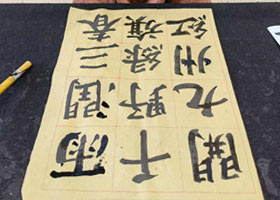 雨潤三春
千野綠旗
開九州紅